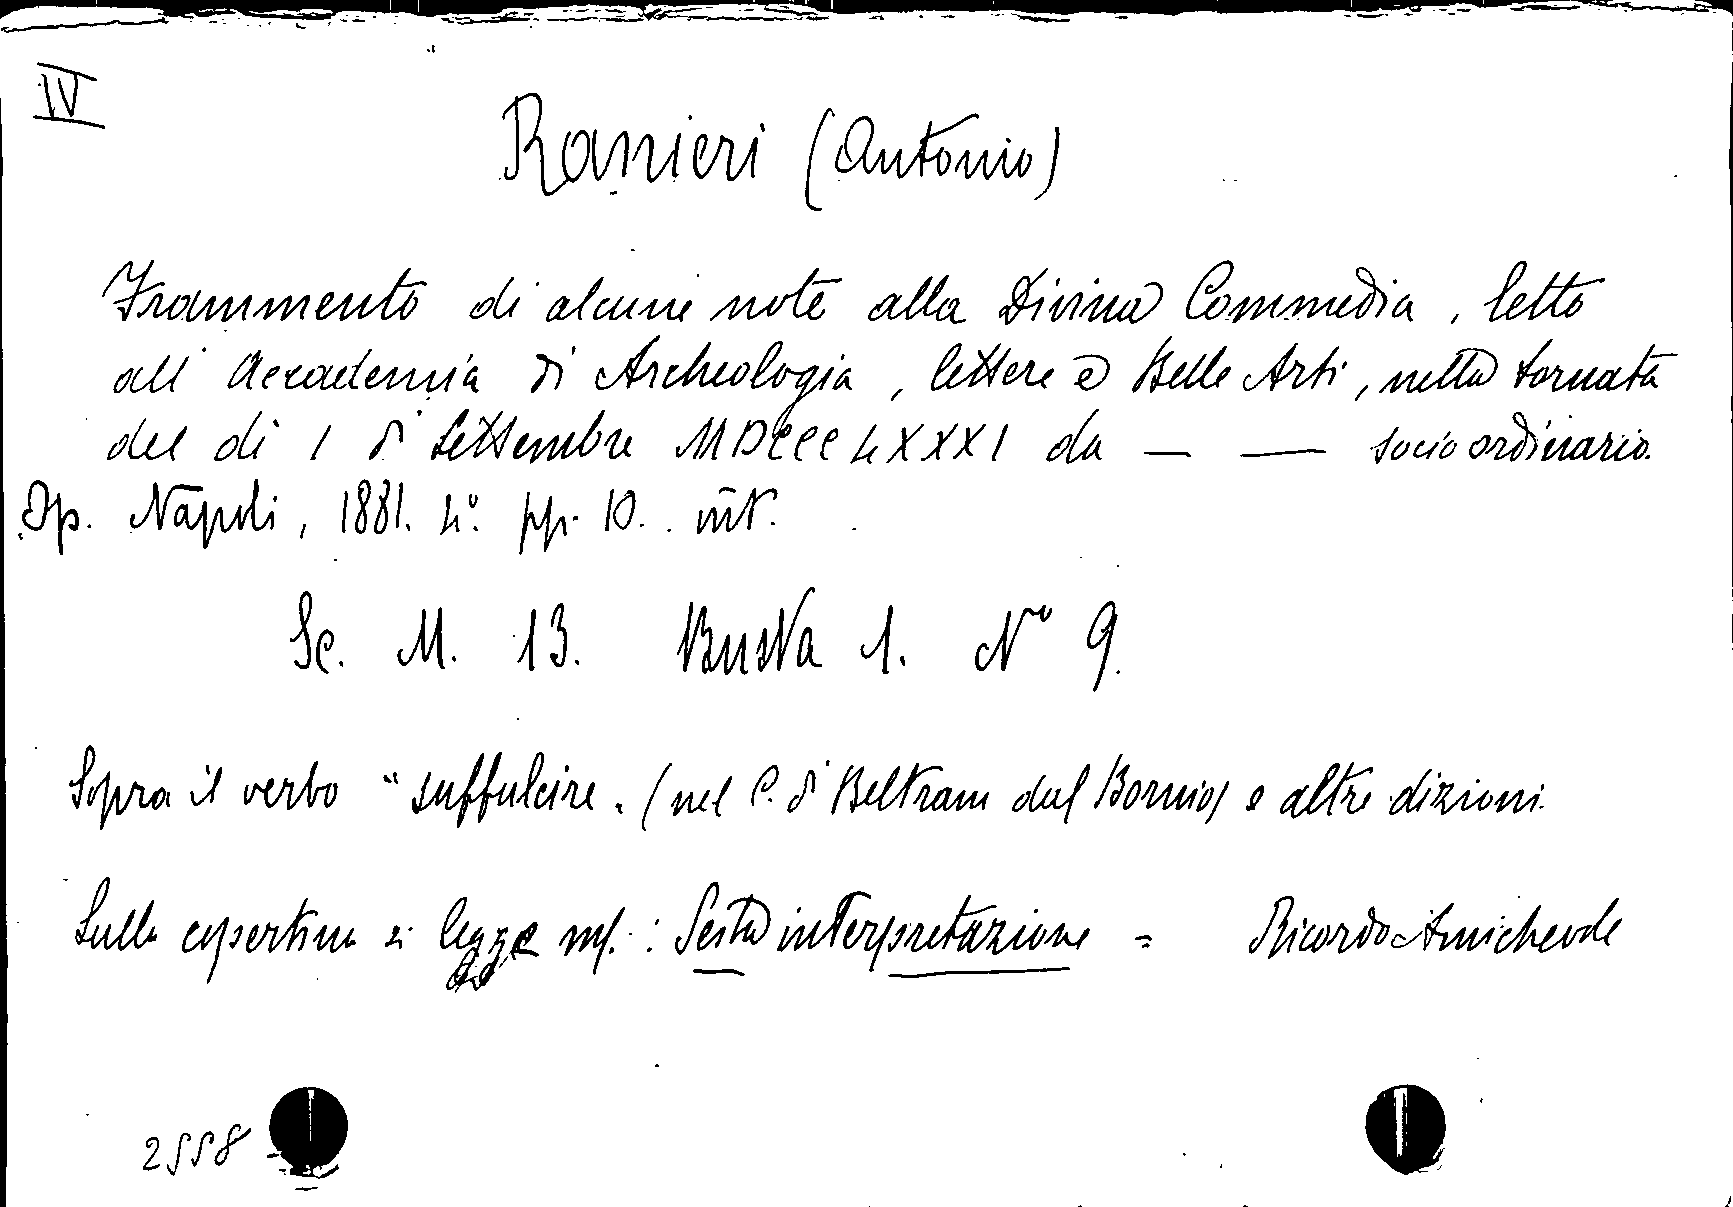 IV
Ranieri (Antonio)
Frammento di alcune note alla Divina Commedia, letto
all' Accademia di Archeologia, lettere e Belle Arti, nella tornata
del di 1 di Settembre MDCCCLXXXI da — — socio ordinario.
Op. Napoli, 1881. 4º. pp. 10.
Sc. M. 13. Busta 1. Nº 9.
Sopra il verbo "suffulcire" (nel C. di Beltram dal Bornio) e altre dizioni.
Sulla copertina si legge ms. : Sesta interpretazione = Ricordo Amichevole
2558